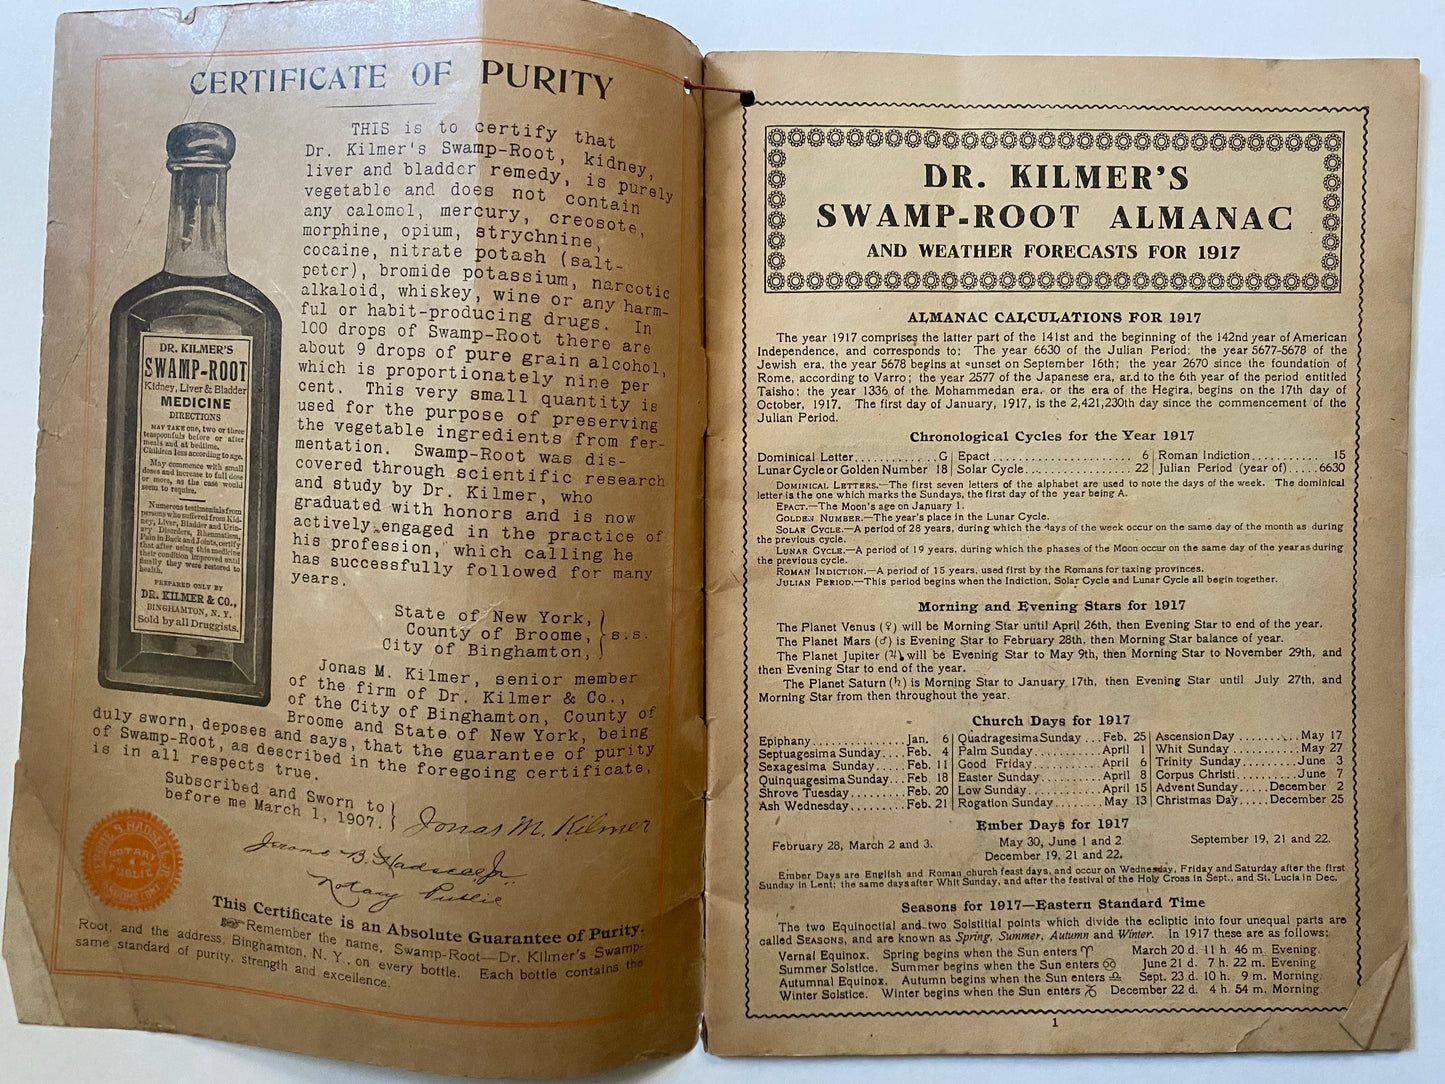 CERTIFICATE OF PURITY
THIS is to certify that
Dr. Kilmer's Swamp-Root, kidney,
liver and bladder remedy, is purely
vegetable and does not contain
any calomel, mercury, creosote,
morphine, opium, strychnine,
cocaine, nitrate potash (salt-
peter), bromide potassium, narcotic
alkaloid, whiskey, wine or any harm-
ful or habit-producing drugs. In
100 drops of Swamp-Root there are
about 9 drops of pure grain alcohol,
which is proportionately nine per
cent. This very small quantity is
used for the purpose of preserving
the vegetable ingredients from fer-
mentation. Swamp-Root was dis-
covered through scientific research
and study by Dr. Kilmer, who
graduated with honors and is now
actively engaged in the practice of
his profession, which calling he
has successfully followed for many
years.
DR. KILMER'S
SWAMP-ROOT
Kidney, Liver & Bladder
MEDICINE
DIRECTIONS
MAY TAKE one, two or three
teaspoonfuls before or after
meals and at bedtime.
Children less according to age.
May commence with small
doses and increase to full dose
or more, as the case would
seem to require.
Numerous testimonials from
persons who suffered from Kid-
ney, Liver, Bladder and Urin-
ary Disorders, Rheumatism,
Pain in Back and Joints, certify
that after using this medicine
their condition improved until
finally they were restored to
health.
PREPARED ONLY BY
DR. KILMER & CO.,
BINGHAMTON, N. Y.
Sold by all Druggists.
State of New York,
County of Broome, s.s.
City of Binghamton,
Jonas M. Kilmer, senior member
of the firm of Dr. Kilmer & Co.,
of the City of Binghamton, County of
Broome and State of New York, being
duly sworn, deposes and says, that the guarantee of purity
of Swamp-Root, as described in the foregoing certificate,
is in all respects true.
Subscribed and Sworn to
before me March 1, 1907. Jonas M. Kilmer
Jerome B. Hadsell Jr.
Notary Public
NOTARY
PUBLIC
This Certificate is an Absolute Guarantee of Purity.
☞Remember the name, Swamp-Root—Dr. Kilmer's Swamp-
Root, and the address, Binghamton, N. Y., on every bottle. Each bottle contains the
same standard of purity, strength and excellence.
DR. KILMER'S
SWAMP-ROOT ALMANAC
AND WEATHER FORECASTS FOR 1917
ALMANAC CALCULATIONS FOR 1917
The year 1917 comprises the latter part of the 141st and the beginning of the 142nd year of American
Independence, and corresponds to: The year 6630 of the Julian Period; the year 5677-5678 of the
Jewish era, the year 5678 begins at sunset on September 16th; the year 2670 since the foundation of
Rome, according to Varro; the year 2577 of the Japanese era, and to the 6th year of the period entitled
Taisho; the year 1336 of the Mohammedan era, or the era of the Hegira, begins on the 17th day of
October, 1917. The first day of January, 1917, is the 2,421,230th day since the commencement of the
Julian Period.
Chronological Cycles for the Year 1917
Dominical Letter............G Epact........................6 Roman Indiction............15
Lunar Cycle or Golden Number 18 Solar Cycle..................22 Julian Period (year of).....6630
DOMINICAL LETTERS.—The first seven letters of the alphabet are used to note the days of the week. The dominical
letter is the one which marks the Sundays, the first day of the year being A.
EPACT.—The Moon's age on January 1.
GOLDEN NUMBER.—The year's place in the Lunar Cycle.
SOLAR CYCLE.—A period of 28 years, during which the days of the week occur on the same day of the month as during
the previous cycle.
LUNAR CYCLE.—A period of 19 years, during which the phases of the Moon occur on the same day of the year as during
the previous cycle.
ROMAN INDICTION.—A period of 15 years, used first by the Romans for taxing provinces.
JULIAN PERIOD.—This period begins when the Indiction, Solar Cycle and Lunar Cycle all begin together.
Morning and Evening Stars for 1917
The Planet Venus (♀) will be Morning Star until April 26th, then Evening Star to end of the year.
The Planet Mars (♂) is Evening Star to February 28th, then Morning Star balance of year.
The Planet Jupiter (♃) will be Evening Star to May 9th, then Morning Star to November 29th, and
then Evening Star to end of the year.
The Planet Saturn (♄) is Morning Star to January 17th, then Evening Star until July 27th, and
Morning Star from then throughout the year.
Church Days for 1917
Epiphany..............Jan. 6 Quadragesima Sunday ...Feb. 25 Ascension Day ...........May 17
Septuagesima Sunday....Feb. 4 Palm Sunday............April 1 Whit Sunday ............May 27
Sexagesima Sunday.....Feb. 11 Good Friday............April 6 Trinity Sunday..........June 3
Quinquagesima Sunday...Feb. 18 Easter Sunday..........April 8 Corpus Christi..........June 7
Shrove Tuesday.........Feb. 20 Low Sunday............April 15 Advent Sunday......December 2
Ash Wednesday.........Feb. 21 Rogation Sunday........May 13 Christmas Day.....December 25
Ember Days for 1917
February 28, March 2 and 3. May 30, June 1 and 2. September 19, 21 and 22.
December 19, 21 and 22.
Ember Days are English and Roman church feast days, and occur on Wednesday, Friday and Saturday after the first
Sunday in Lent; the same days after Whit Sunday, and after the festival of the Holy Cross in Sept., and St. Lucia in Dec.
Seasons for 1917—Eastern Standard Time
The two Equinoctial and two Solstitial points which divide the ecliptic into four unequal parts are
called SEASONS, and are known as Spring, Summer, Autumn and Winter. In 1917 these are as follows:
Vernal Equinox. Spring begins when the Sun enters ♈ March 20 d. 11 h. 46 m. Evening.
Summer Solstice. Summer begins when the Sun enters ♋ June 21 d. 7 h. 22 m. Evening
Autumnal Equinox. Autumn begins when the Sun enters ♎ Sept. 23 d. 10 h. 9 m. Morning.
Winter Solstice. Winter begins when the Sun enters ♑ December 22 d. 4 h. 54 m. Morning
1